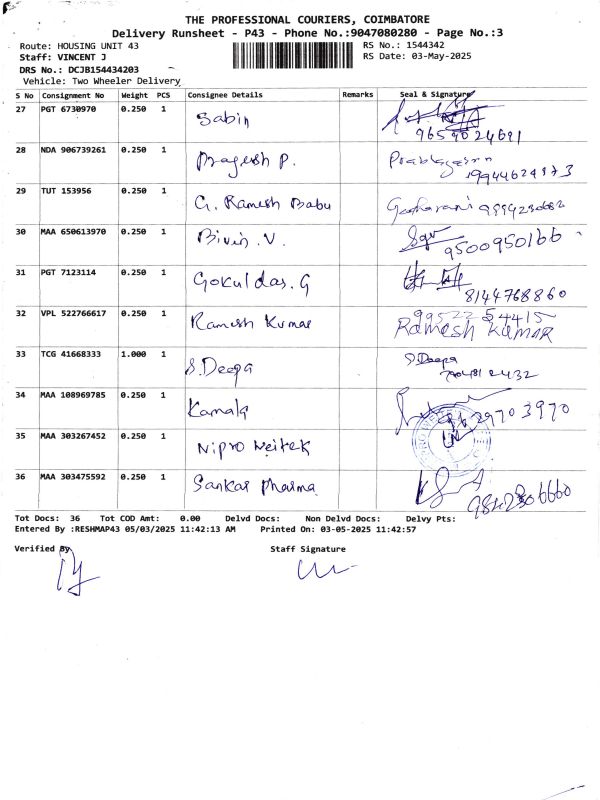 THE PROFESSIONAL COURIERS, COIMBATORE
Delivery Runsheet - P43 - Phone No.:9047080280 - Page No.:3
Route: HOUSING UNIT 43 RS No.: 1544342
Staff: VINCENT J RS Date: 03-May-2025
DRS No.: DCJB154434203
Vehicle: Two Wheeler Delivery
S No Consignment No Weight PCS Consignee Details Remarks Seal & Signature
27 PGT 6730970 0.250 1 Sabin
9659024691
28 NDA 906739261 0.250 1 Pragesh P.
9944624973
29 TUT 153956 0.250 1 G. Ramesh Babu 9994230682
30 MAA 650613970 0.250 1 Bivin .V.
9500950166
31 PGT 7123114 0.250 1 Gokuldas. G
8144768860
32 VPL 522766617 0.250 1 Ramesh Kumar 99522 54415
Ramesh Kumar
33 TCG 41668333 1.000 1 S.Deepa S.Deepa
34 MAA 108969785 0.250 1 Kamala
29703970
35 MAA 303267452 0.250 1 Nipro Meitek
36 MAA 303475592 0.250 1 Sankar Pharma
9842306660
Tot Docs: 36 Tot COD Amt: 0.00 Delvd Docs: Non Delvd Docs: Delvy Pts:
Entered By :RESHMAP43 05/03/2025 11:42:13 AM Printed On: 03-05-2025 11:42:57
Verified By Staff Signature